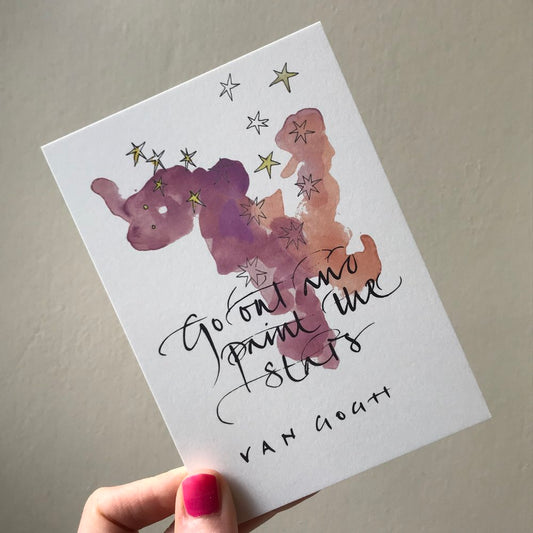 Go out and
paint the
stars
VAN GOGH